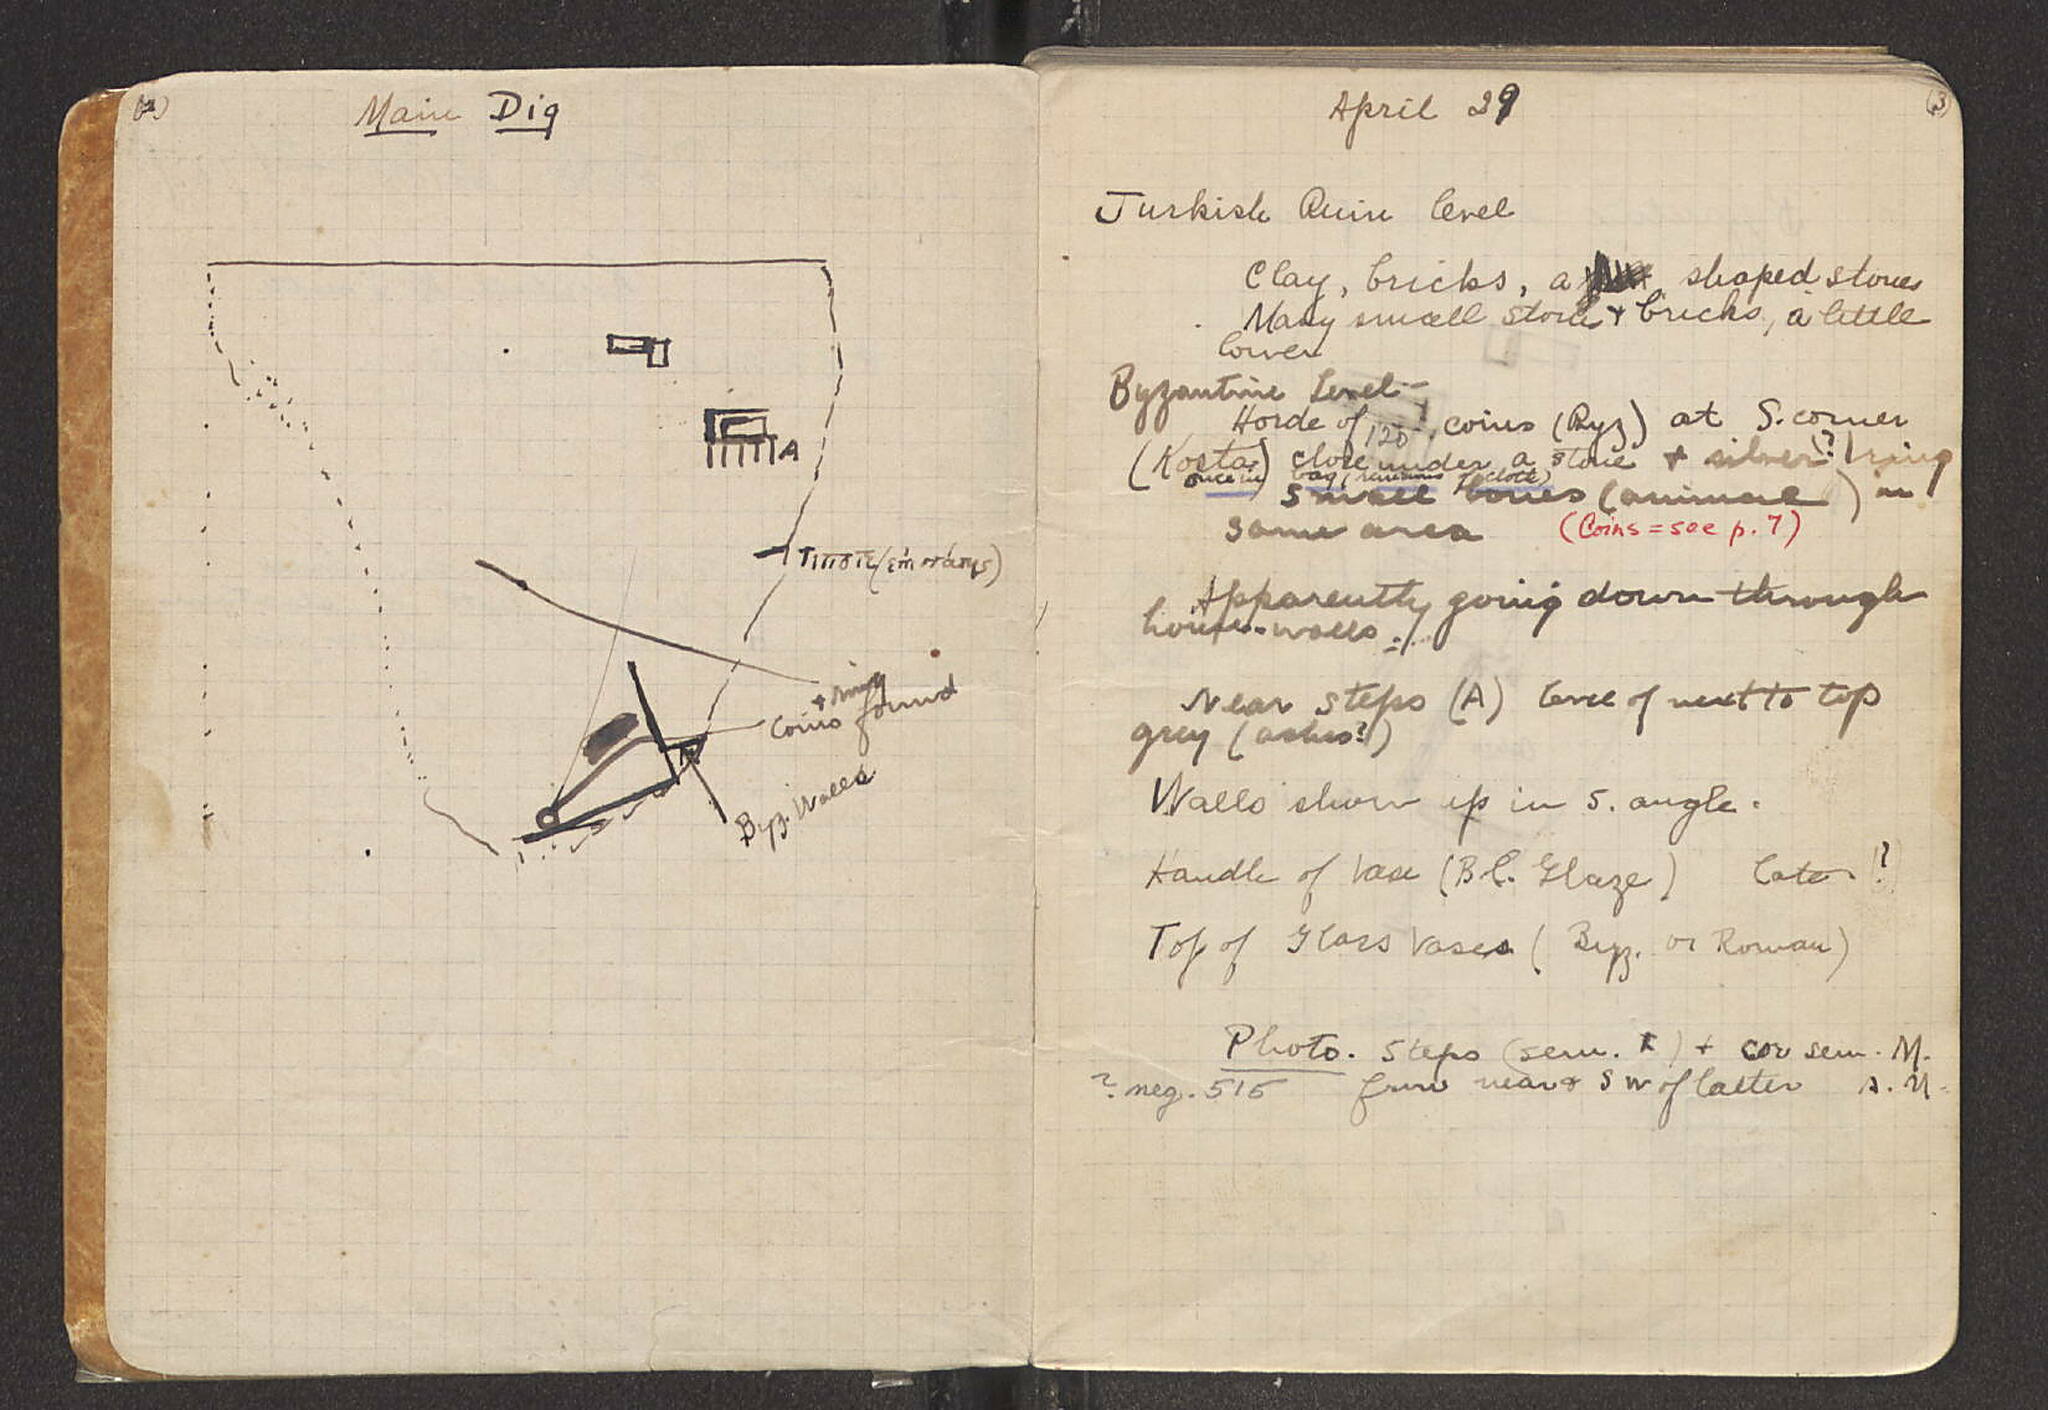 (2)
Main Dig
A
+ ring
Coins found
Byz. Walls
(3)
April 29
Turkish Ruin level
Clay, bricks, a shaped stones
Many small stones + bricks, a little
lower
Byzantine Level —
Horde of 120 coins (Byz) at S. corner
(Kosta) close under a stone + silver? ring
once in bag (remains of cloth)
small bones (animal) in
same area (Coins = see p. 7)
Apparently going down through
house-walls.
Near steps (A) level of next to top
grey (ashes?)
Walls show up in S. angle.
Handle of Vase (Bl. Glaze) Late ?
Top of Glass Vases (Byz. or Roman)
Photo. Steps (sem. ) + cor sem. M.
? neg. 515 from near & SW of latter